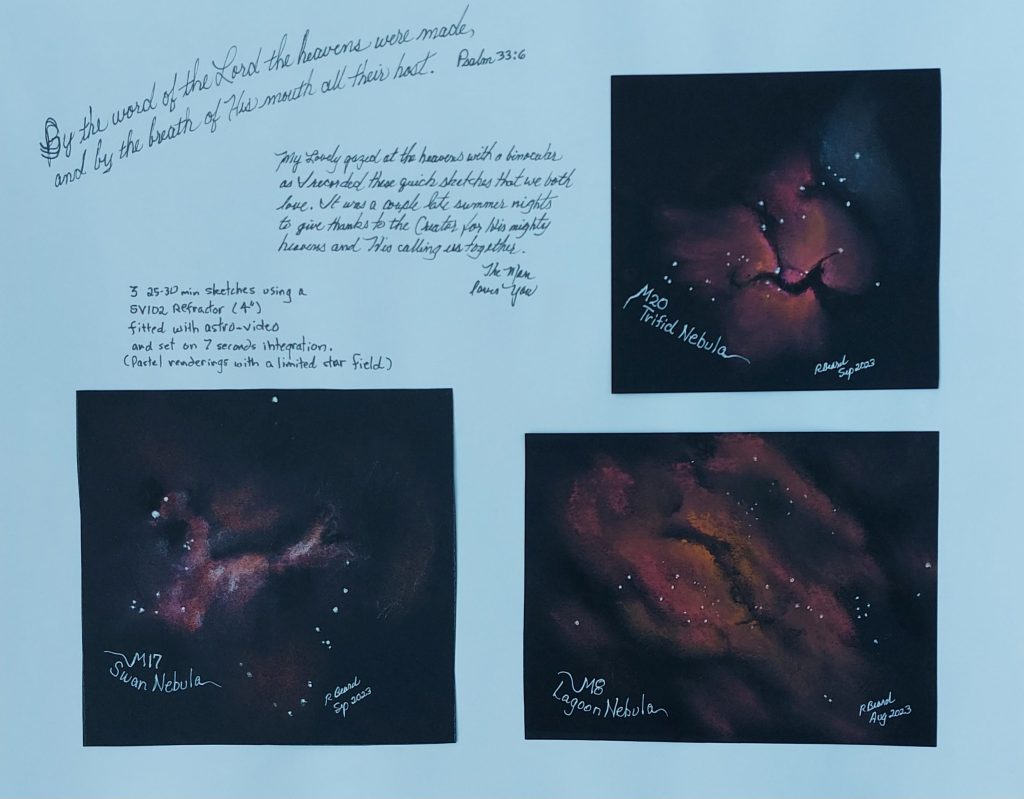 By the word of the Lord the heavens were made,
and by the breath of His mouth all their host. Psalm 33:6
My Lovely gazed at the heavens with a binocular
as I recorded these quick sketches that we both
love. It was a couple late summer nights
to give thanks to the Creator for His mighty
heavens and His calling us together.
The Man
loves You
3 25-30 min sketches using a
SV102 Refractor (4")
fitted with astro-video
and set on 7 seconds integration.
(Pastel renderings with a limited star field)
M20
Trifid Nebula
R Beard
Sep 2023
M17
Swan Nebula
R Beard
Sep 2023
M8
Lagoon Nebula
R Beard
Aug 2023